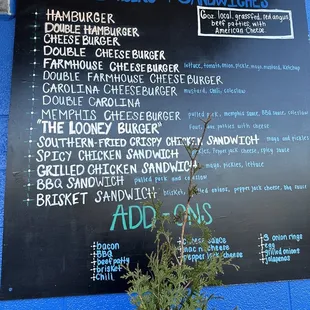 SANDWICHES
6oz. local, grassfed, red angus
beef patties with
American Cheese
HAMBURGER
DOUBLE HAMBURGER
CHEESE BURGER
DOUBLE CHEESEBURGER
FARMHOUSE CHEESEBURGER lettuce, tomato, onion, pickle, mayo, mustard, ketchup
DOUBLE FARMHOUSE CHEESEBURGER
CAROLINA CHEESEBURGER mustard, chili, coleslaw
DOUBLE CAROLINA
MEMPHIS CHEESEBURGER pulled pork, memphis sauce, BBQ sauce, coleslaw
"THE LOONEY BURGER" Four, 6oz patties with cheese
SOUTHERN-FRIED CRISPY CHICKEN SANDWICH mayo and pickles
SPICY CHICKEN SANDWICH pickles, pepper jack cheese, spicy sauce
GRILLED CHICKEN SANDWICH mayo, pickles, lettuce
BBQ SANDWICH pulled pork and coleslaw
BRISKET SANDWICH brisket, grilled onions, pepper jack cheese, bbq sauce
ADD-ONS
bacon
BBQ
beef patty
brisket
chili
cheese sauce
mac n cheese
pepper jack cheese
3 onion rings
egg
grilled onions
jalapenos